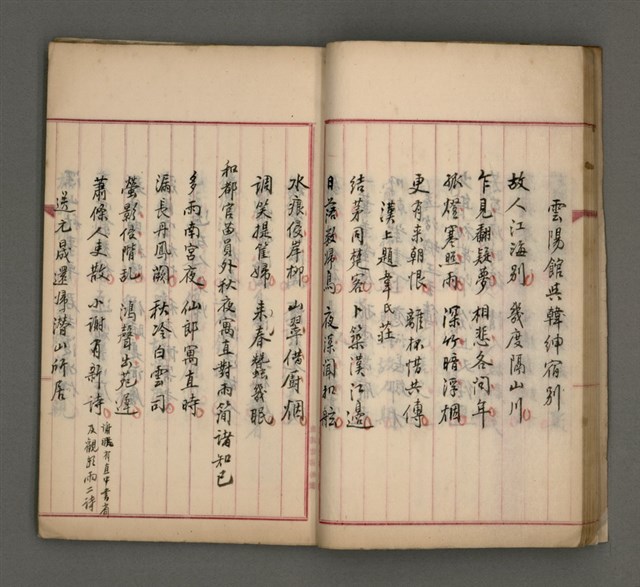 雲陽館與韓紳宿別
故人江海別 幾度隔山川
乍見翻疑夢 相悲各問年
孤燈寒照雨 深竹暗浮烟
更有来朝恨 離杯惜共傳
漢上題韋氏莊
結茅同楚客 卜築漢江邊
日落數歸鳥 夜深聞扣舷
水痕侵岸柳 山翠借厨烟
調笑提筐婦 来春蠶幾眠
和都官苗員外秋夜寓直對雨簡諸知已
多雨南宮夜 仙郎寓直時
漏長丹鳳闕 秋冷白雲司
螢影侵階乱 鴻聲出苑遲
蕭條人吏散 小謝有新詩
謝朓有直中書省
及觀朝雨二詩
送元晟還歸潛山所居